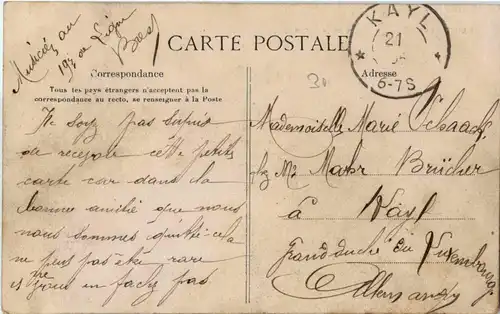 CARTE POSTALE
Correspondance
Tous les pays étrangers n'acceptent pas la
correspondance au recto, se renseigner à la Poste
Adresse
KAYL
21
6-7S
30
Ne soyz pas surpris
de recevoir cette petite
carte car dans la
bonne amitié que nous
nous sommes quitté cela
ne peus pas être rare
pas
Mademoiselle Marie Schaack
chz Mr Mahr Brücher
à Kayl
Grand duché du Luxembourg
Allemany